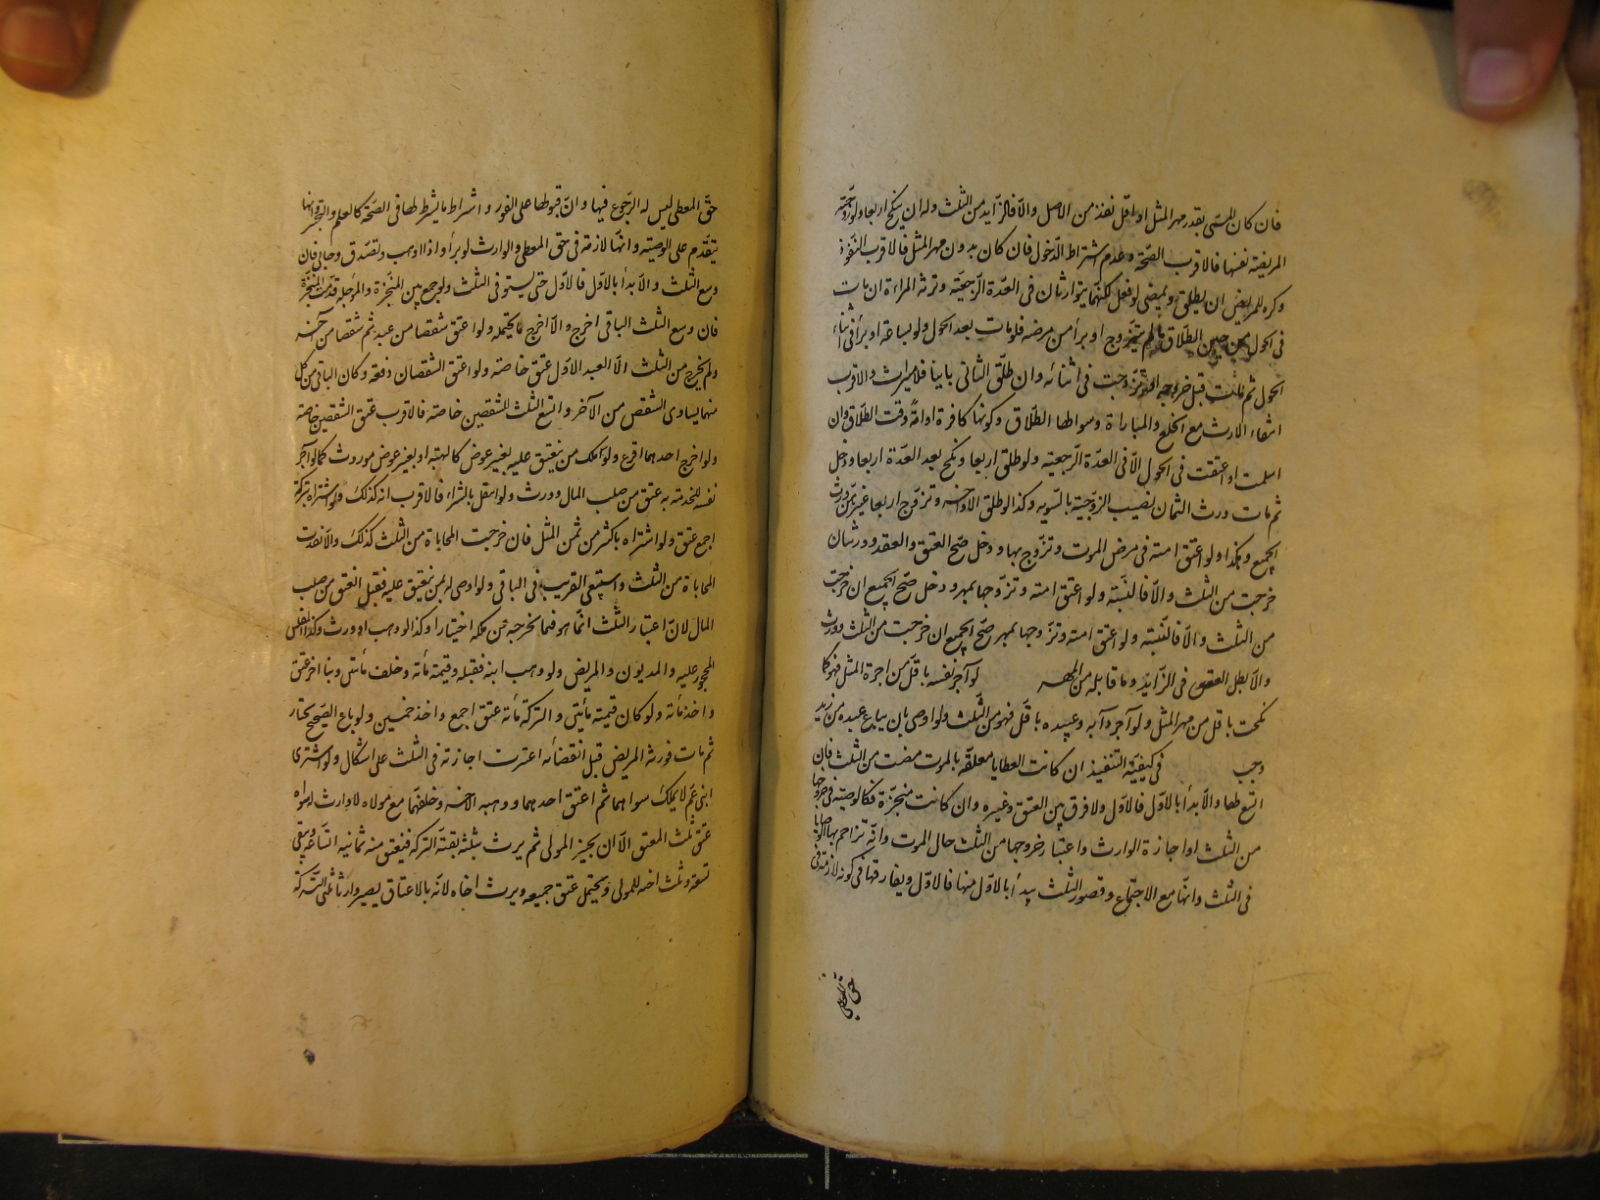 فان كان المسمى بقدر مهر المثل او اقل نفذ من الاصل والّا فالزايد من الثلث وله ان ينكح اربعا ولو زوجت
المريضة نفسها فالاقرب الصحة وعدم اشتراط الدخول فان كان بدون مهر المثل فالاقرب النفوذ
وكره للمريض ان يطلق ويمضى لو فعل لكنهما يتوارثان فى العدّة الرّجعيّة وترثه المراءة ان مات
فى الحول من حين الطّلاق ما لم يتزوج او يبرأ من مرضه فلو مات بعد الحول ولو بساعة او برأ فى اثناء
الحول ثم مات قبل خروجه او تزوجت فى اثنائه وان طلّق الثانى باينا فلا ميراث والاقرب
انتفاء الارث مع الخلع والمباراة وسؤالها الطّلاق وكونها كافرة او امة وقت الطّلاق وان
اسلمت او اعتقت فى الحول الّا فى العدّة الرّجعيّة ولو طلق اربعا ونكح بعد العدّة اربعا ودخل
ثم مات ورث الثمان نصيب الزوجيّة بالسّوية وكذا لو طلق الاواخر وتزوّج اربعا غيرهن ورث
الجميع وهكذا ولو اعتق امته فى مرض الموت وتزوج بها ودخل صحّ العتق والعقد وورثت ان
خرجت من الثلث والّا فالنسبة ولو اعتق امته وتزوجها بمهر ودخل صحّ الجميع ان خرجت
من الثلث والّا فالنسبة ولو اعتق امته وتزوجها بمهر صحّ الجميع ان خرجت من الثلث وورثت
والّا بطل العتق فى الزايد وما قابله من المهر لو آجر نفسه باقل من اجرة المثل فهو كما
نكحت باقل من مهر المثل ولو آجر دآبه وعبيده باقل فهو من الثلث ولو اوصى بان يباع عبده من زيد
وجب فى كيفيّة التنفيذ ان كانت العطايا معلّقة بالموت مضت من الثلث فان
اتسع لها والّا بدأ بالاوّل فالاوّل ولا فرق بين العتق وغيره وان كانت منجّزة فكالوصيّة فى خروجها
من الثلث او اجازة الوارث واعتبار خروجها من الثلث حال الموت وانّه تزاحم بها الوصايا
فى الثلث وانّها مع الاجتماع وقصور الثلث يبدأ بالاوّل منها فالاوّل ويفارقها فى كونه لازمة فى
حق المعطى
حقّ المعطى ليس له الرّجوع فيها وانّ قبولها على الفور و اشتراط ما يشترط لها فى الصّحّة كالعلم والتّنجيز وانها
يتقدّم على الوصيّة وانّها لازمة فى حق المعطى والوارث لو برأ واذا اوهب وتصدّق وحابى فان
وسع الثلث والّا بدأ بالاوّل فالاوّل حتى يستوفى الثلث ولو جمع بين المنجّزة والمؤجلة قدّمت المنجّزة
فان وسع الثلث الباقى اخرج والّا اخرج ما يحتمله ولو اعتق شقصا من عبد ثم شقصا من آخر
ولم يخرج من الثلث الّا العبد الاوّل عتق خاصّة ولو اعتق الشقصان دفعة وكان الباقى من كل
منهما يساوى الشقص من الآخر واتسع الثلث للشقصين خاصّة فالاقرب عتق الشقصين خاصّة
ولو اخرج احدهما اقرع ولو ملك من ينعتق عليه بغير عوض كالهبة او بغير عوض موروث كما لو آجر
نفسه للخدمة به عتق من صلب المال وورث ولو انتقل بالشراء فالاقرب انه كذلك ولو اشتراه بتركة
اجمع عتق ولو اشتراه باكثر من ثمن المثل فان خرجت المحاباة من الثلث كذلك والّا نفذت
المحاباة من الثلث واستسعى القريب فى الباقى ولو اوصى له بمن ينعتق عليه فقبل انعتق من صلب
المال لانّ اعتبار الثلث انّما هو فيما يخرجه عن ملكه اختيارا وكذا لو وهب او ورث وكذا المفلس
المحجور عليه والمديون والمريض ولو وهب ابنه فقبله وقيمته مأة وخلف مأتى وبنا اخر عتق
واخذ مأة ولو كان قيمته مأتى والتركة مأة عتق اجمع واخذ خمسين ولو باع الصّحيح بخيار
ثم مات فورثه المريض قبل انقضائه اعتبرت اجازته فى الثلث على اشكال ولو اشترى
ابنى عم لا يملك سواهما ثم اعتق احدهما ووهبه الآخر وخلفهما مع مولاه لا وارث سواه
عتق ثلث المعتق الّا ان يجيز المولى ثم يرث بثلثه بقيّة التركة فينعتق منه ثمانية اتساعه ويبقى
تسعه وثلث اخيه للمولى ويحتمل عتق جميعه ويرث اخاه لانّه بالاعتاق يصير وارثا لثلثى التركة